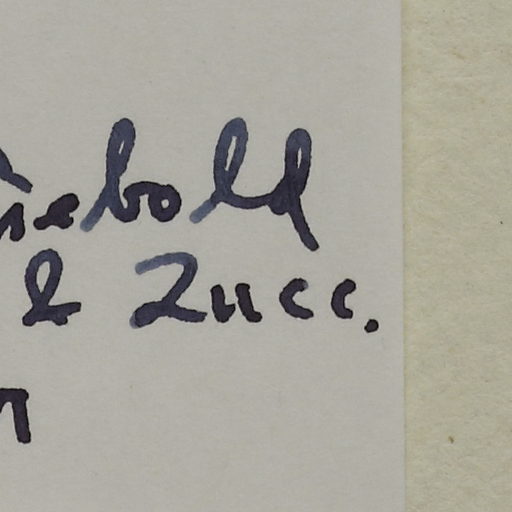 iebold
& Zucc.
n